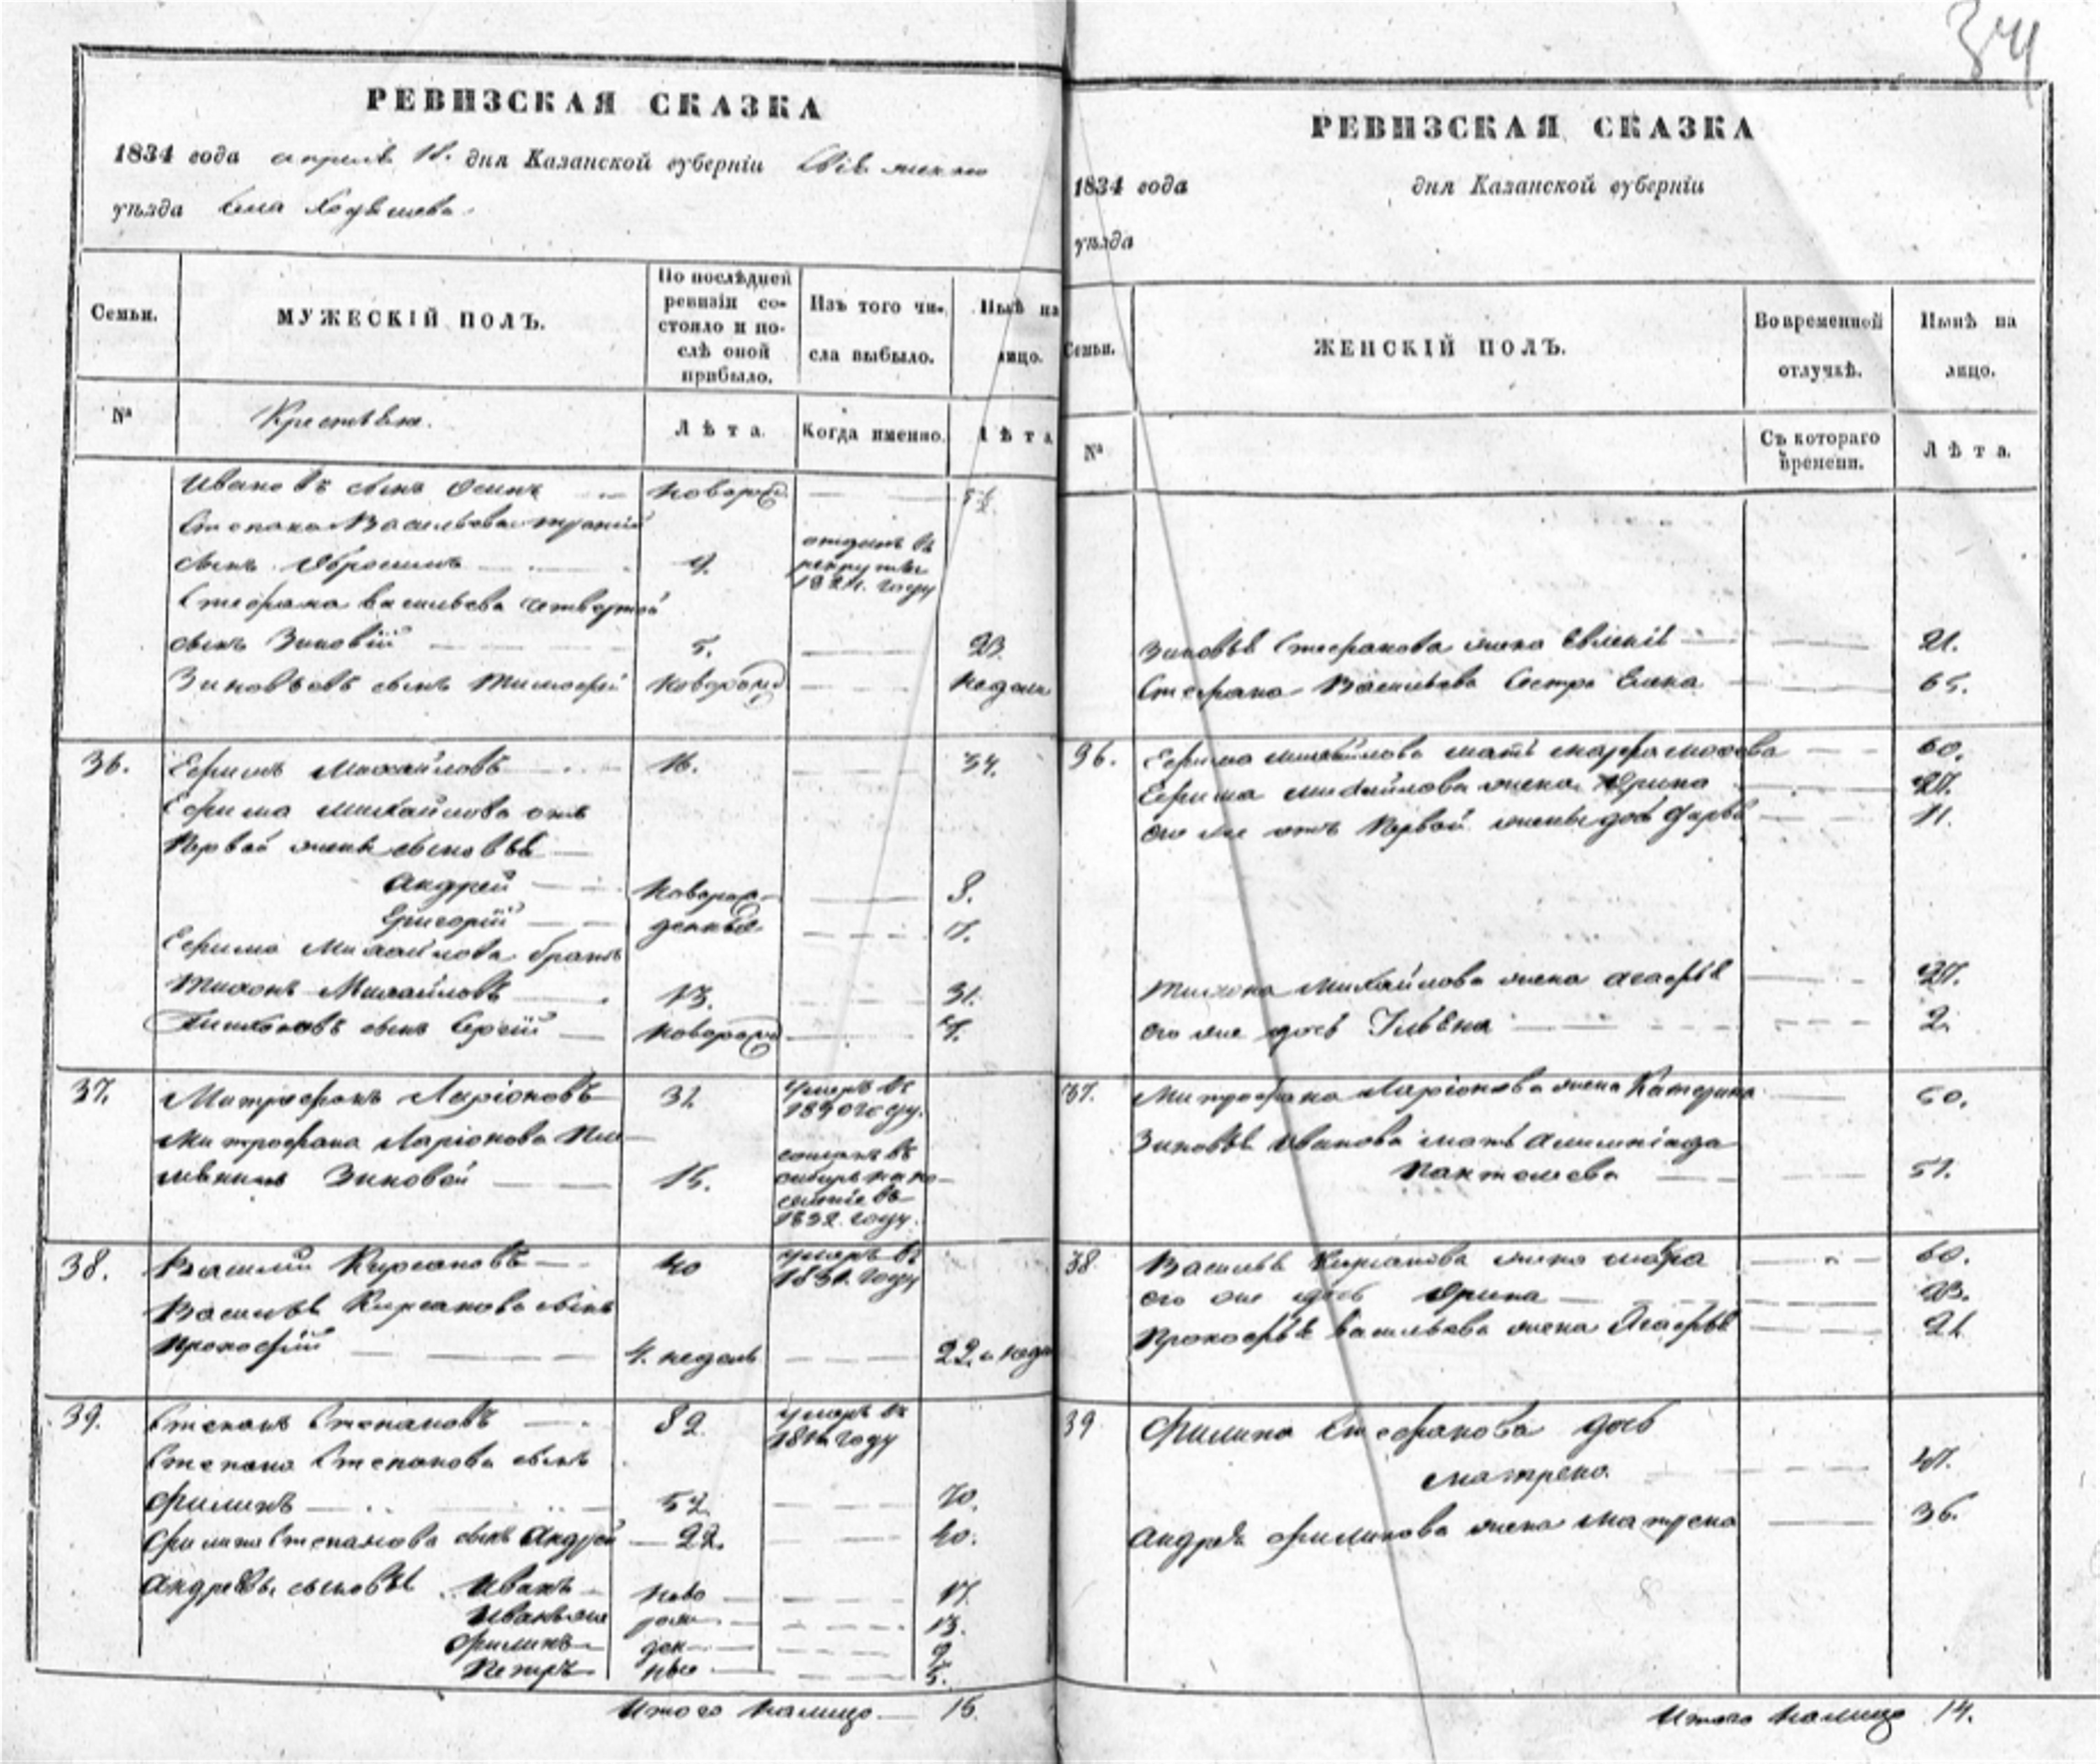 34
РЕВИЗСКАЯ СКАЗКА
1834 года апреля дня Казанской губерніи
уѣзда села
Семьи.
МУЖЕСКІЙ ПОЛЪ.
По послѣдней ревизіи состояло и послѣ оной прибыло.
Изъ того числа выбыло.
Нынѣ на лицо.
№
Крестьяне.
Лѣта.
Когда именно.
Лѣта
Ивановъ сынъ Осипъ новорож
Степана Васильева третій
отданъ въ
сынъ Обросимъ рекруты
1824. году
Стефана Васильева четвертой
сынъ Зиновій 5. 23.
Зиновьевъ сынъ Тимофей новорожд недель
36. Ефимъ Михайловъ 16. 34.
Ефима Михайлова отъ
первой жены сыновья
Андрей новорож- 8.
Григорій денные 7.
Ефима Михайлова братъ
Тихонъ Михайловъ 13. 31.
Тихоновъ сынъ Сергій новорожд
37. Митрофанъ Ларіоновъ умеръ въ
году.
Митрофана Ларіонова пле-
мянникъ Зиновей 15. сосланъ въ
сибирь на по-
селѣніе въ
1832. году.
38. Василій Кирсановъ 40 умеръ въ
1831. году
Василья Кирсанова сынъ
Прокофій 4. недель 22. и неде
39. Степанъ Степановъ 82. умеръ въ
году
Степана Степанова сынъ
Филипъ 52. 70.
Филипа Степанова сынъ Андрей 22. 40.
Андреевы сыновья Иванъ ново 17.
Иванъ же рож 13.
Филипъ ден 9.
Петръ ные 5.
Итого налицо 15.
РЕВИЗСКАЯ СКАЗКА
1834 года дня Казанской губерніи
уѣзда
Семьи.
ЖЕНСКІЙ ПОЛЪ.
Во временной отлучкѣ.
Нынѣ на лицо.
№
Съ котораго времени.
Лѣта.
Зиновья Стефанова жена 21.
Стефана Васильева сестра Елена 65.
36. Ефима Михайлова мать Марфа 60.
Ефима Михайлова жена Орина 27.
его же отъ первой жены дочь Дарья 11.
Тихона Михайлова жена Агафья 27.
его же дочь Ульяна 2.
37. Митрофана Ларіонова жена Катерина
Зиновья Иванова мать Алимпіада
Пантелева 51.
38 Василья Кирсанова жена Мавра 60.
его же дочь Орина 23.
Прокофья Васильева жена Агафья 21.
39 Филипа Стефанова дочь
Матрена 47.
Андрея Филипова жена Матрена 36.
Итого налицо 14.